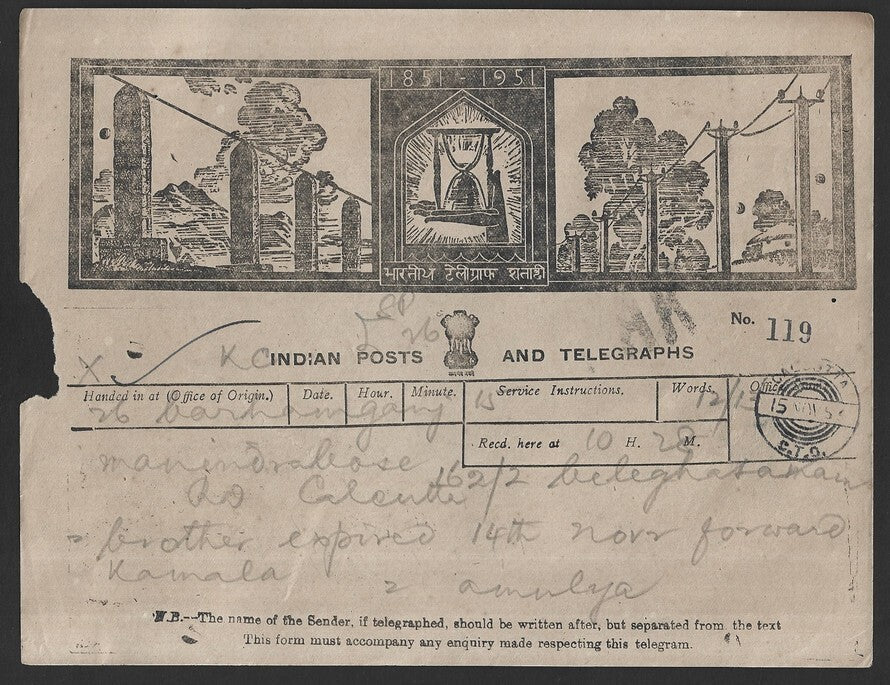 1851-1951
भारतीय टेलीग्राफ शताब्दी
SP
26
No. 119
X KC
INDIAN POSTS AND TELEGRAPHS
Handed in at (Office of Origin.) Date. Hour. Minute. Service Instructions. Words.
26 barhamganj 15 12/13
Recd. here at 10 H. 28 M.
C.T.O.
manindrabose 162/2 beleghatamain
RD Calcutta
= brother expired 14th novr forward
Kamala = amulya
N.B.--The name of the Sender, if telegraphed, should be written after, but separated from the text
This form must accompany any enquiry made respecting this telegram.